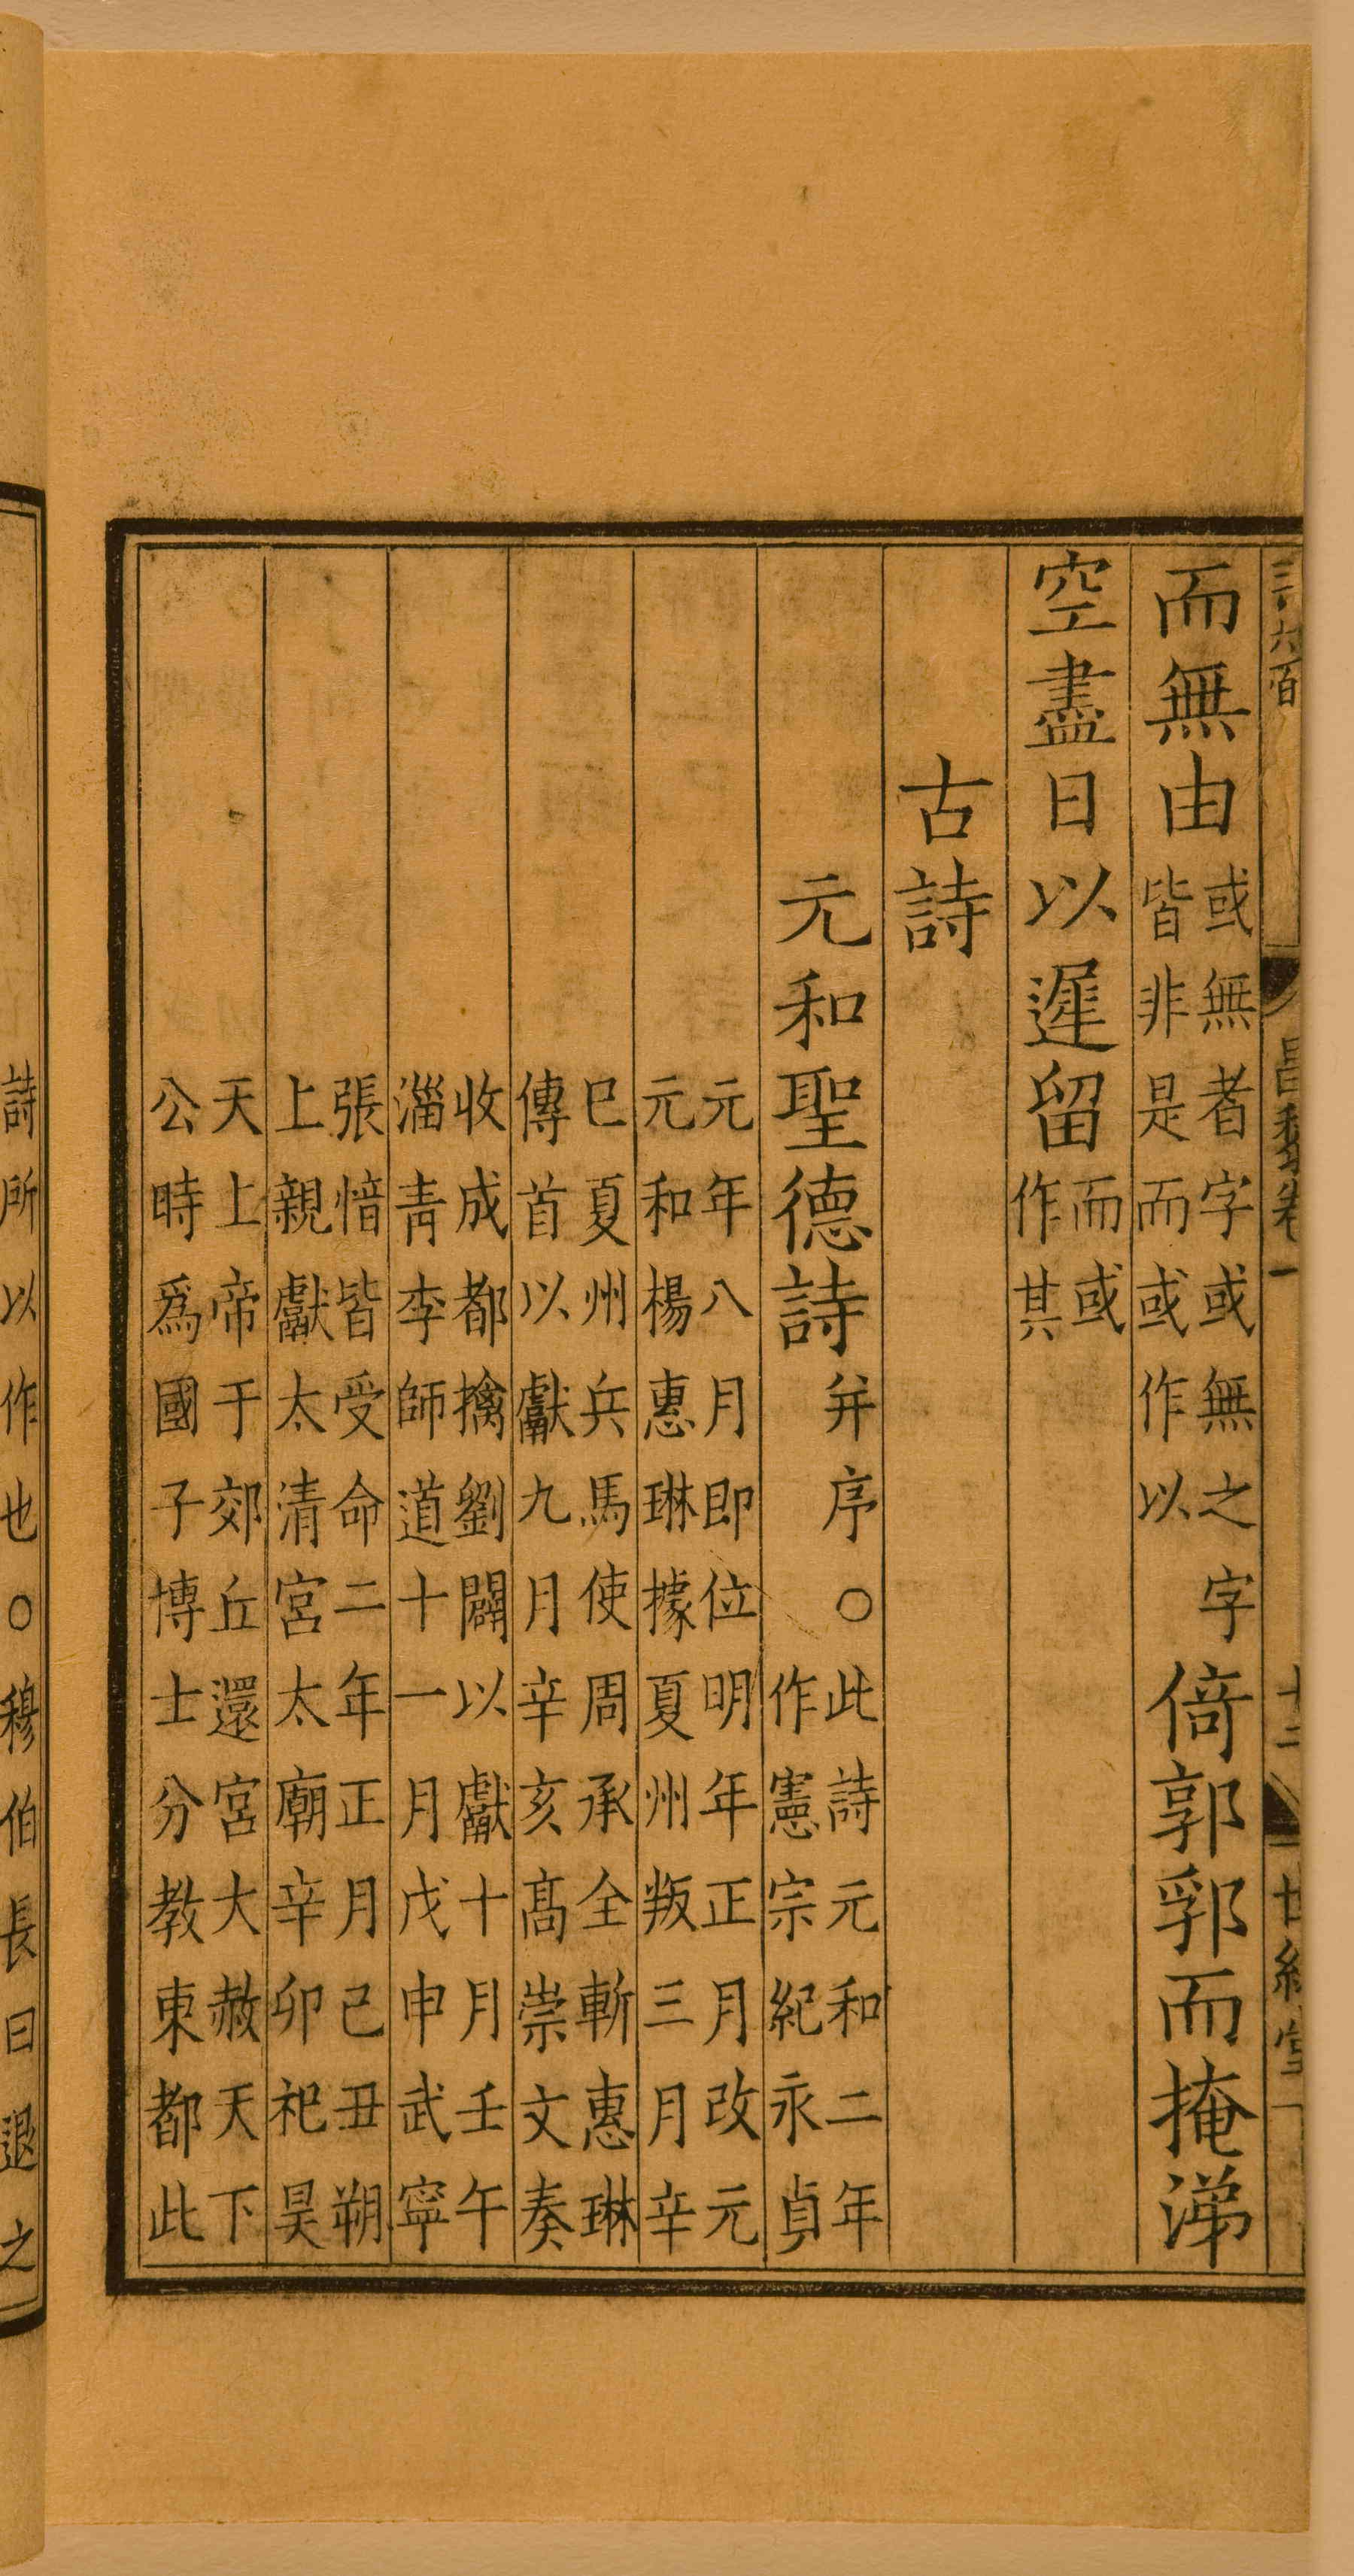 三六百 昌黎卷一 十二 世綵堂
而無由或無者字或無之字皆非是而或作以倚郭郛而掩涕
空盡日以遲留而或作其
古詩
元和聖德詩并序○此詩元和二年作憲宗紀永貞
元年八月即位明年正月改元元和楊惠琳據夏州叛三月辛
巳夏州兵馬使周承全斬惠琳傳首以獻九月辛亥高崇文奏
收成都擒劉闢以獻十月壬午淄青李師道十一月戊申武寧
張愔皆受命二年正月己丑朔上親獻太清宮太廟辛卯祀昊
天上帝于郊丘還宮大赦天下公時爲國子博士分教東都此
詩所以作也○穆伯長曰退之